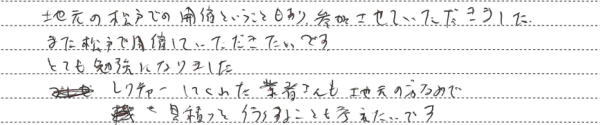 地元の松戸での開催ということもあり参加させていただきました
また松戸で開催していただきたいです
とても勉強になりました
レクチャーしてくれた業者さんも地元の方なので
見積って行くことも考えたいです